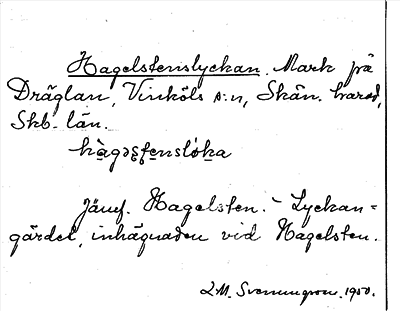 Hagelstenslyckan. Mark på
Dräglan, Vinköls s:n, Skån. harad,
Skb. län.
hàgəsṭenslòka
Jämf. Hagelsten. - Lyckan =
gärdet, inhägnaden vid Hagelsten.
L.M. Svenungson. 1950.